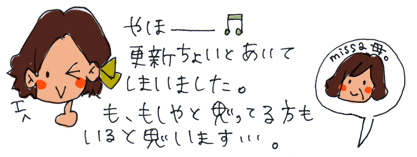 やほー
更新ちょいとあいて
しまいました。
も、もしやと思ってる方も
いると思います…。
エヘ
missa母。